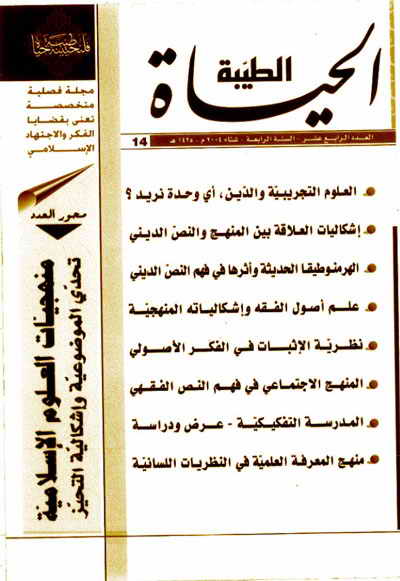 فلنحيينه حياة طيبة
الحياة
الطيّبة
العدد الرابع عشر - السنة الرابعة - شتاء ٢٠٠٤ م - ١٤٢٥ هـ
14
مجلة فصلية
متخصصة
تعنى بقضايا
الفكر والاجتهاد
الإسلامي
محور العدد
منهجيّات العلوم الإسلاميّة
تحدّي الموضوعيّة وإشكاليّة التحيّز
العلوم التجريبيّة والدّين، أي وحدة نريد ؟
إشكاليات العلاقة بين المنهج والنصّ الديني
الهرمنوطيقا الحديثة وأثرها في فهم النصّ الديني
علم أصول الفقه وإشكالياته المنهجيّة
نظريّة الإثبات في الفكر الأصولي
المنهج الاجتماعي في فهم النص الفقهي
المدرسة التفكيكيّة - عرض ودراسة
منهج المعرفة العلميّة في النظريات اللسانيّة